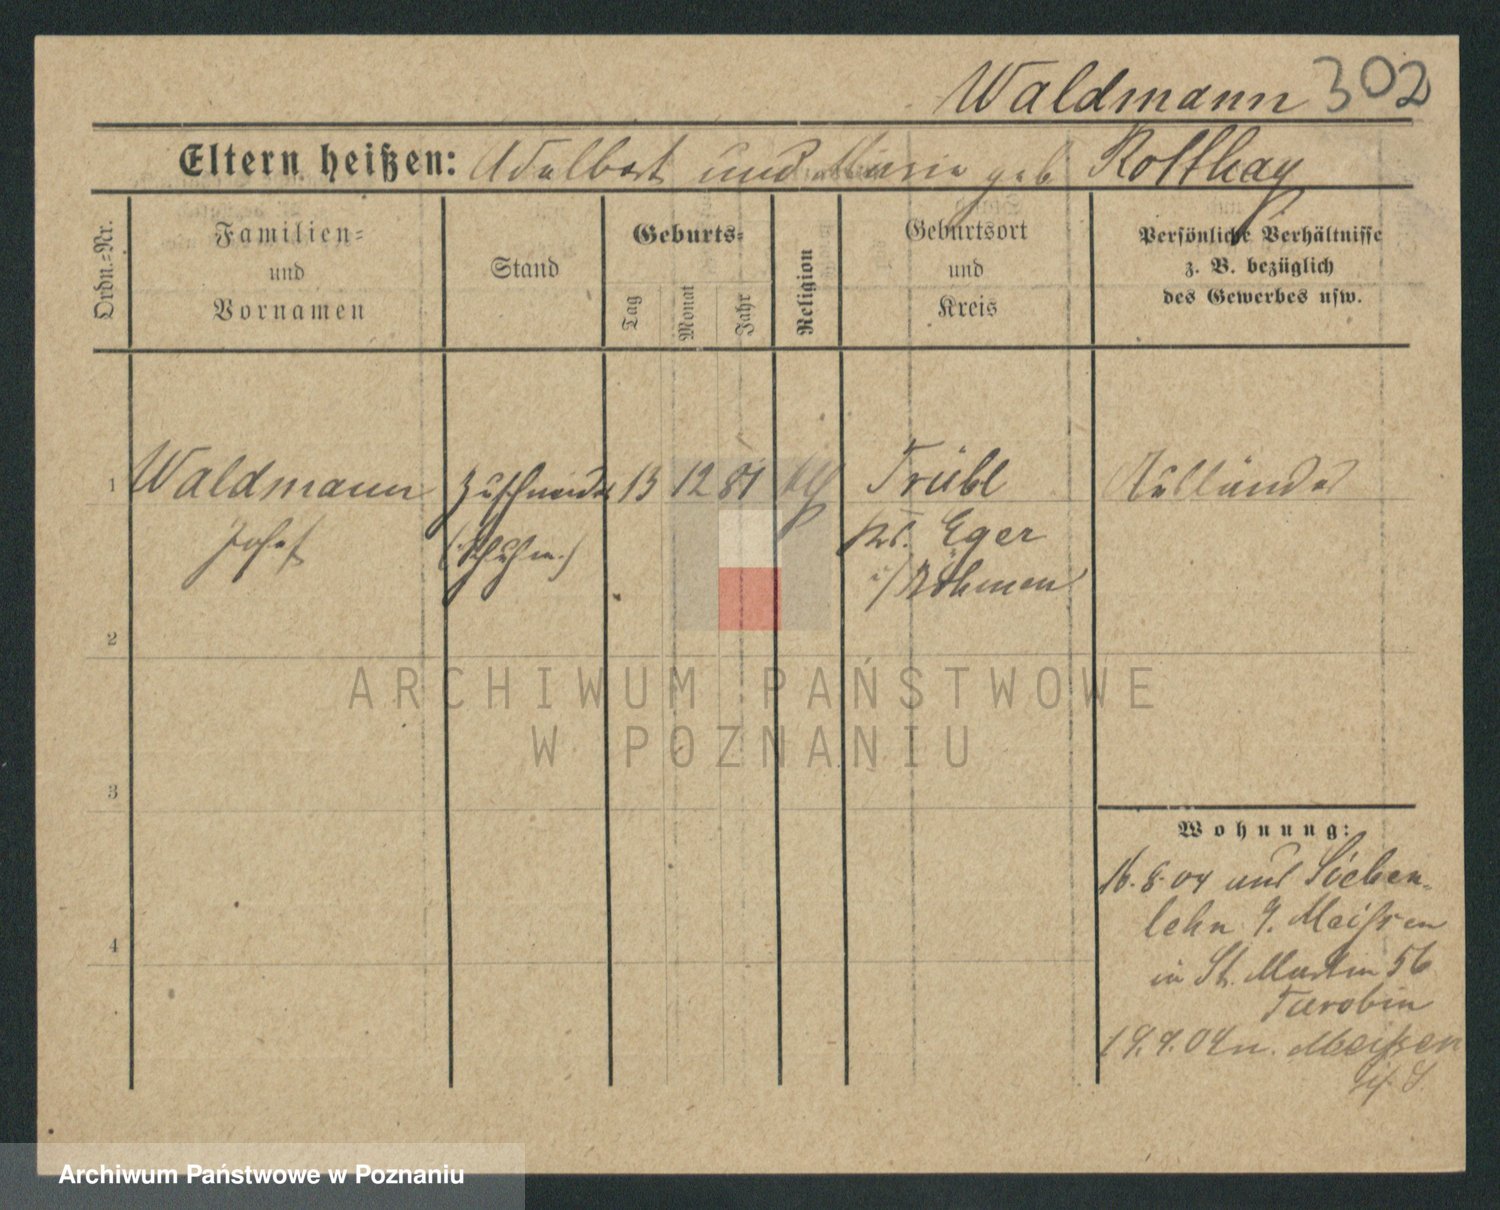 Waldmann 302
Eltern heißen: Adalbert und Marie geb Rotthay
Ordn.-Nr.
Familien-
und
Vornamen
Stand
Geburts-
Tag
Monat
Jahr
Religion
Geburtsort
und
Kreis
Persönliche Verhältnisse
z. B. bezüglich
des Gewerbes usw.
1 Waldmann Zuschneider 13 12 81 Trübl Ausländer
Josef (Schuhm.) Kr. Eger
i/Böhmen
2
3
4
Wohnung:
16.8.04 aus Sieben-
lehn Meissen
in St. Martin 56
Turobin
19.9.04 n. Meißen
ARCHIWUM PAŃSTWOWE
W POZNANIU
Archiwum Państwowe w Poznaniu